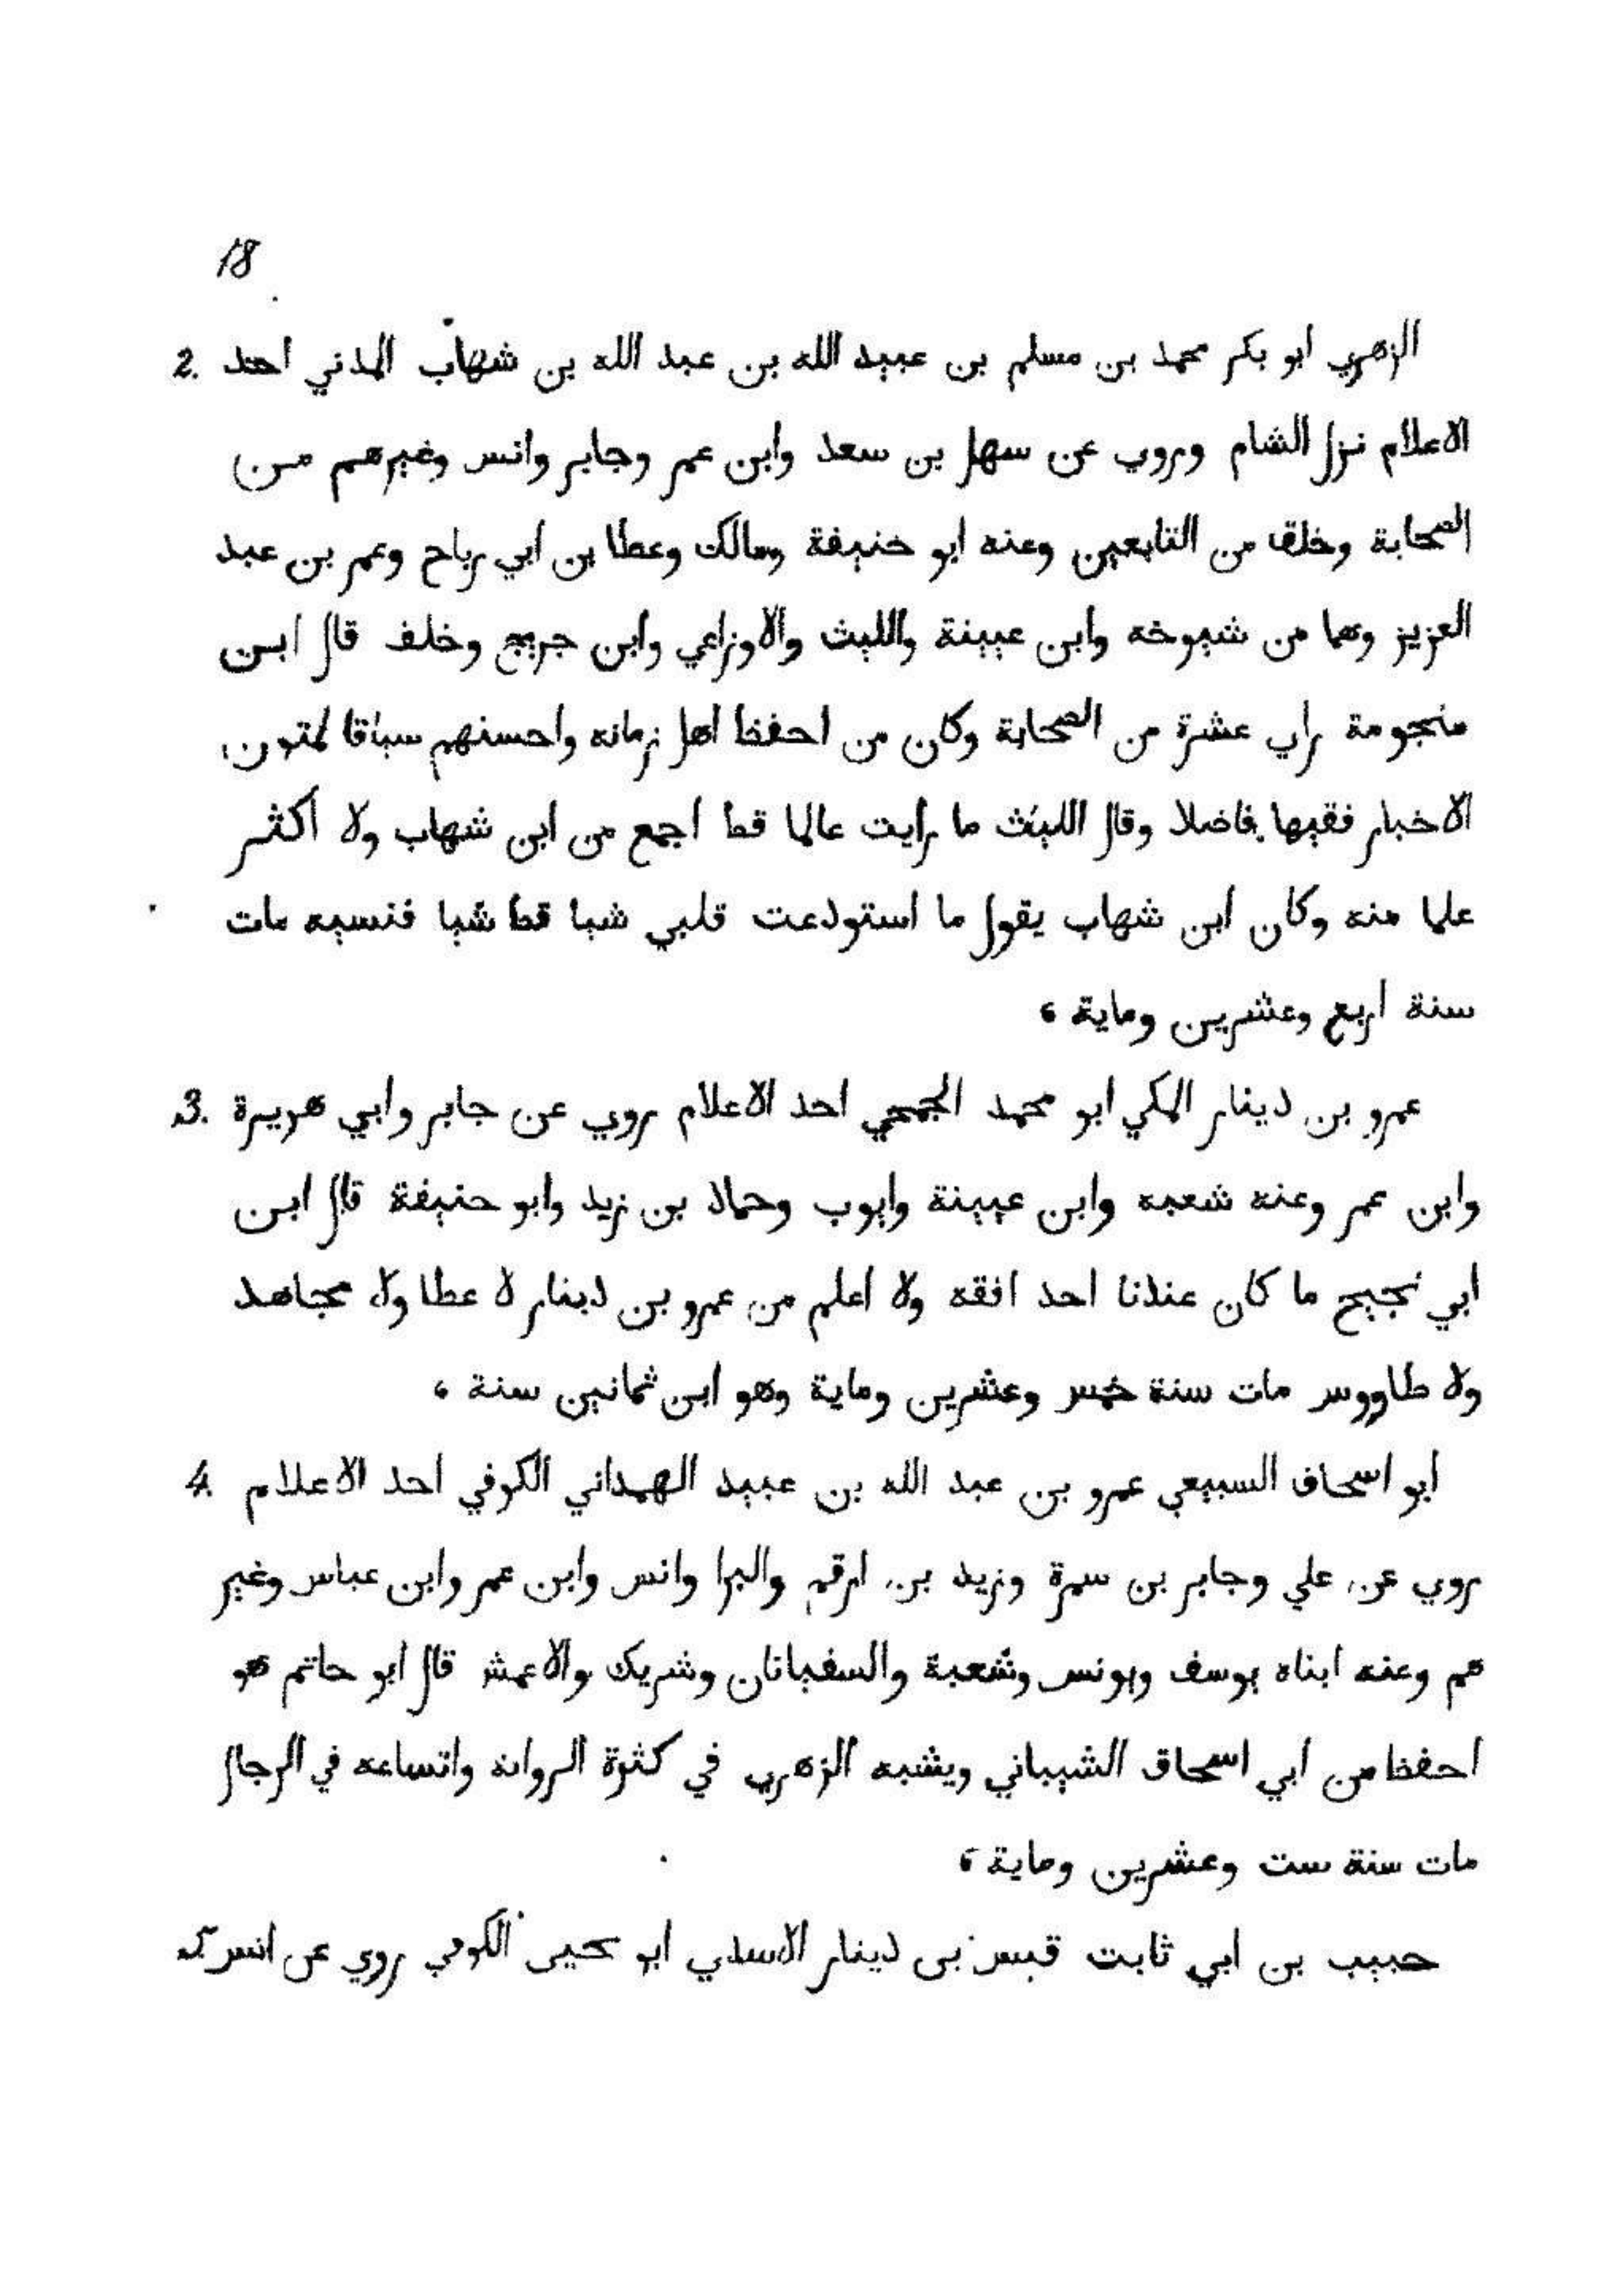 18
2. الزهري ابو بكر محمد بن مسلم بن عبيد الله بن عبد الله بن شهاب المدني احد
الاعلام نزل الشام وروي عن سهل بن سعد وابن عمر وجابر وانس وغيرهم من
الصحابة وخلق من التابعين وعنه ابو حنيفة ومالك وعطا بن ابي رباح وعمر بن عبد
العزيز وهما من شيوخه وابن عيينة والليث والاوزاعي وابن جريج وخلف قال ابن
منجومة راي عشرة من الصحابة وكان من احفظ اهل زمانه واحسنهم سياقا لمتون
الاخبار فقيها فاضلا وقال الليث ما رايت عالما قط اجمع من ابن شهاب ولا اكثر
علما منه وكان ابن شهاب يقول ما استودعت قلبي شيا قط شيا فنسيه مات
سنة اربع وعشرين وماية ،
3. عمرو بن دينار المكي ابو محمد الجمحي احد الاعلام روي عن جابر وابي هريرة
وابن عمر وعنه شعبه وابن عيينة وايوب وحماد بن زيد وابو حنيفة قال ابن
ابي نجيح ما كان عندنا احد افقه ولا اعلم من عمرو بن دينار لا عطا ولا مجاهد
ولا طاووس مات سنة خمس وعشرين وماية وهو ابن ثمانين سنة ،
4. ابو اسحاف السبيعي عمرو بن عبد الله بن عبيد الهمداني الكوفي احد الاعلام
روي عن علي وجابر بن سمرة وزيد بن ارقم والبرا وانس وابن عمر وابن عباس وغير
هم وعنه ابناه يوسف ويونس وشعبة والسفيانان وشريك والاعمش قال ابو حاتم هو
احفظ من ابي اسحاق الشيباني ويشبه الزهري في كثرة الروانه واتساعه في الرجال
مات سنة ست وعشرين وماية ،
حبيب بن ابي ثابت قيس بن دينار الاسدي ابو يحيى الكوفي روي عن انس